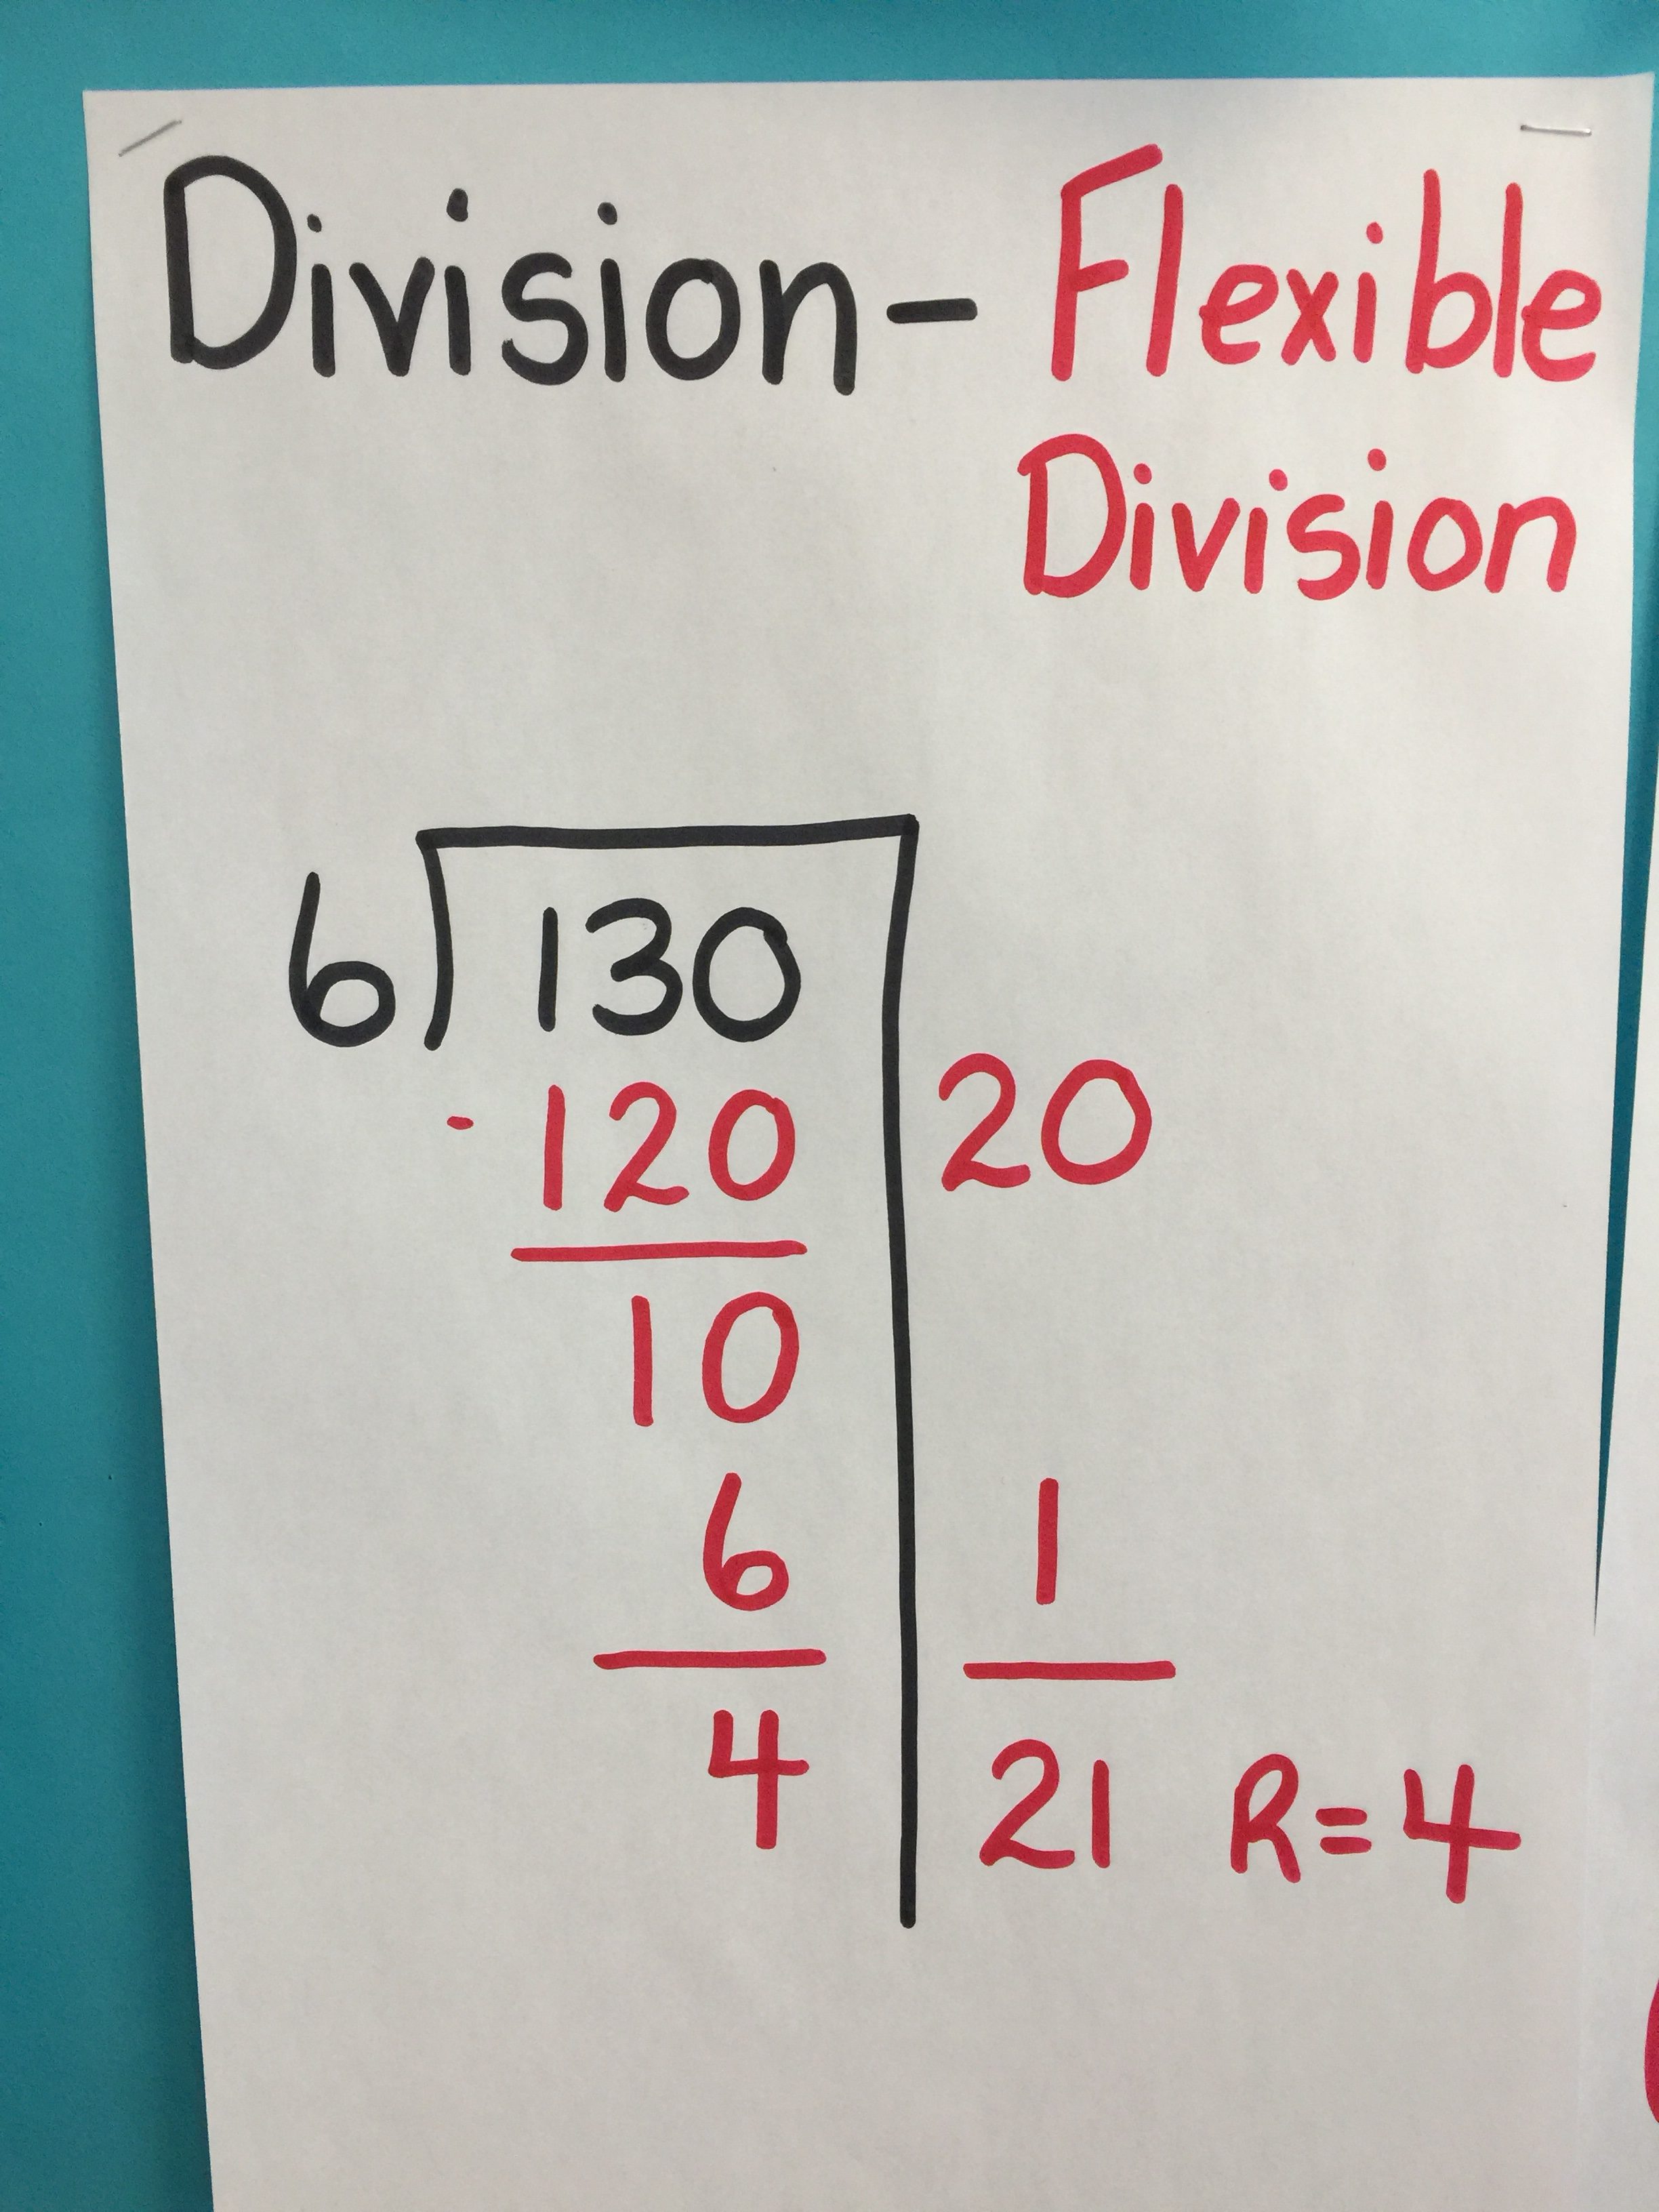 Division - Flexible
Division
6 130
- 120 20
10
6 1
4 21 R=4